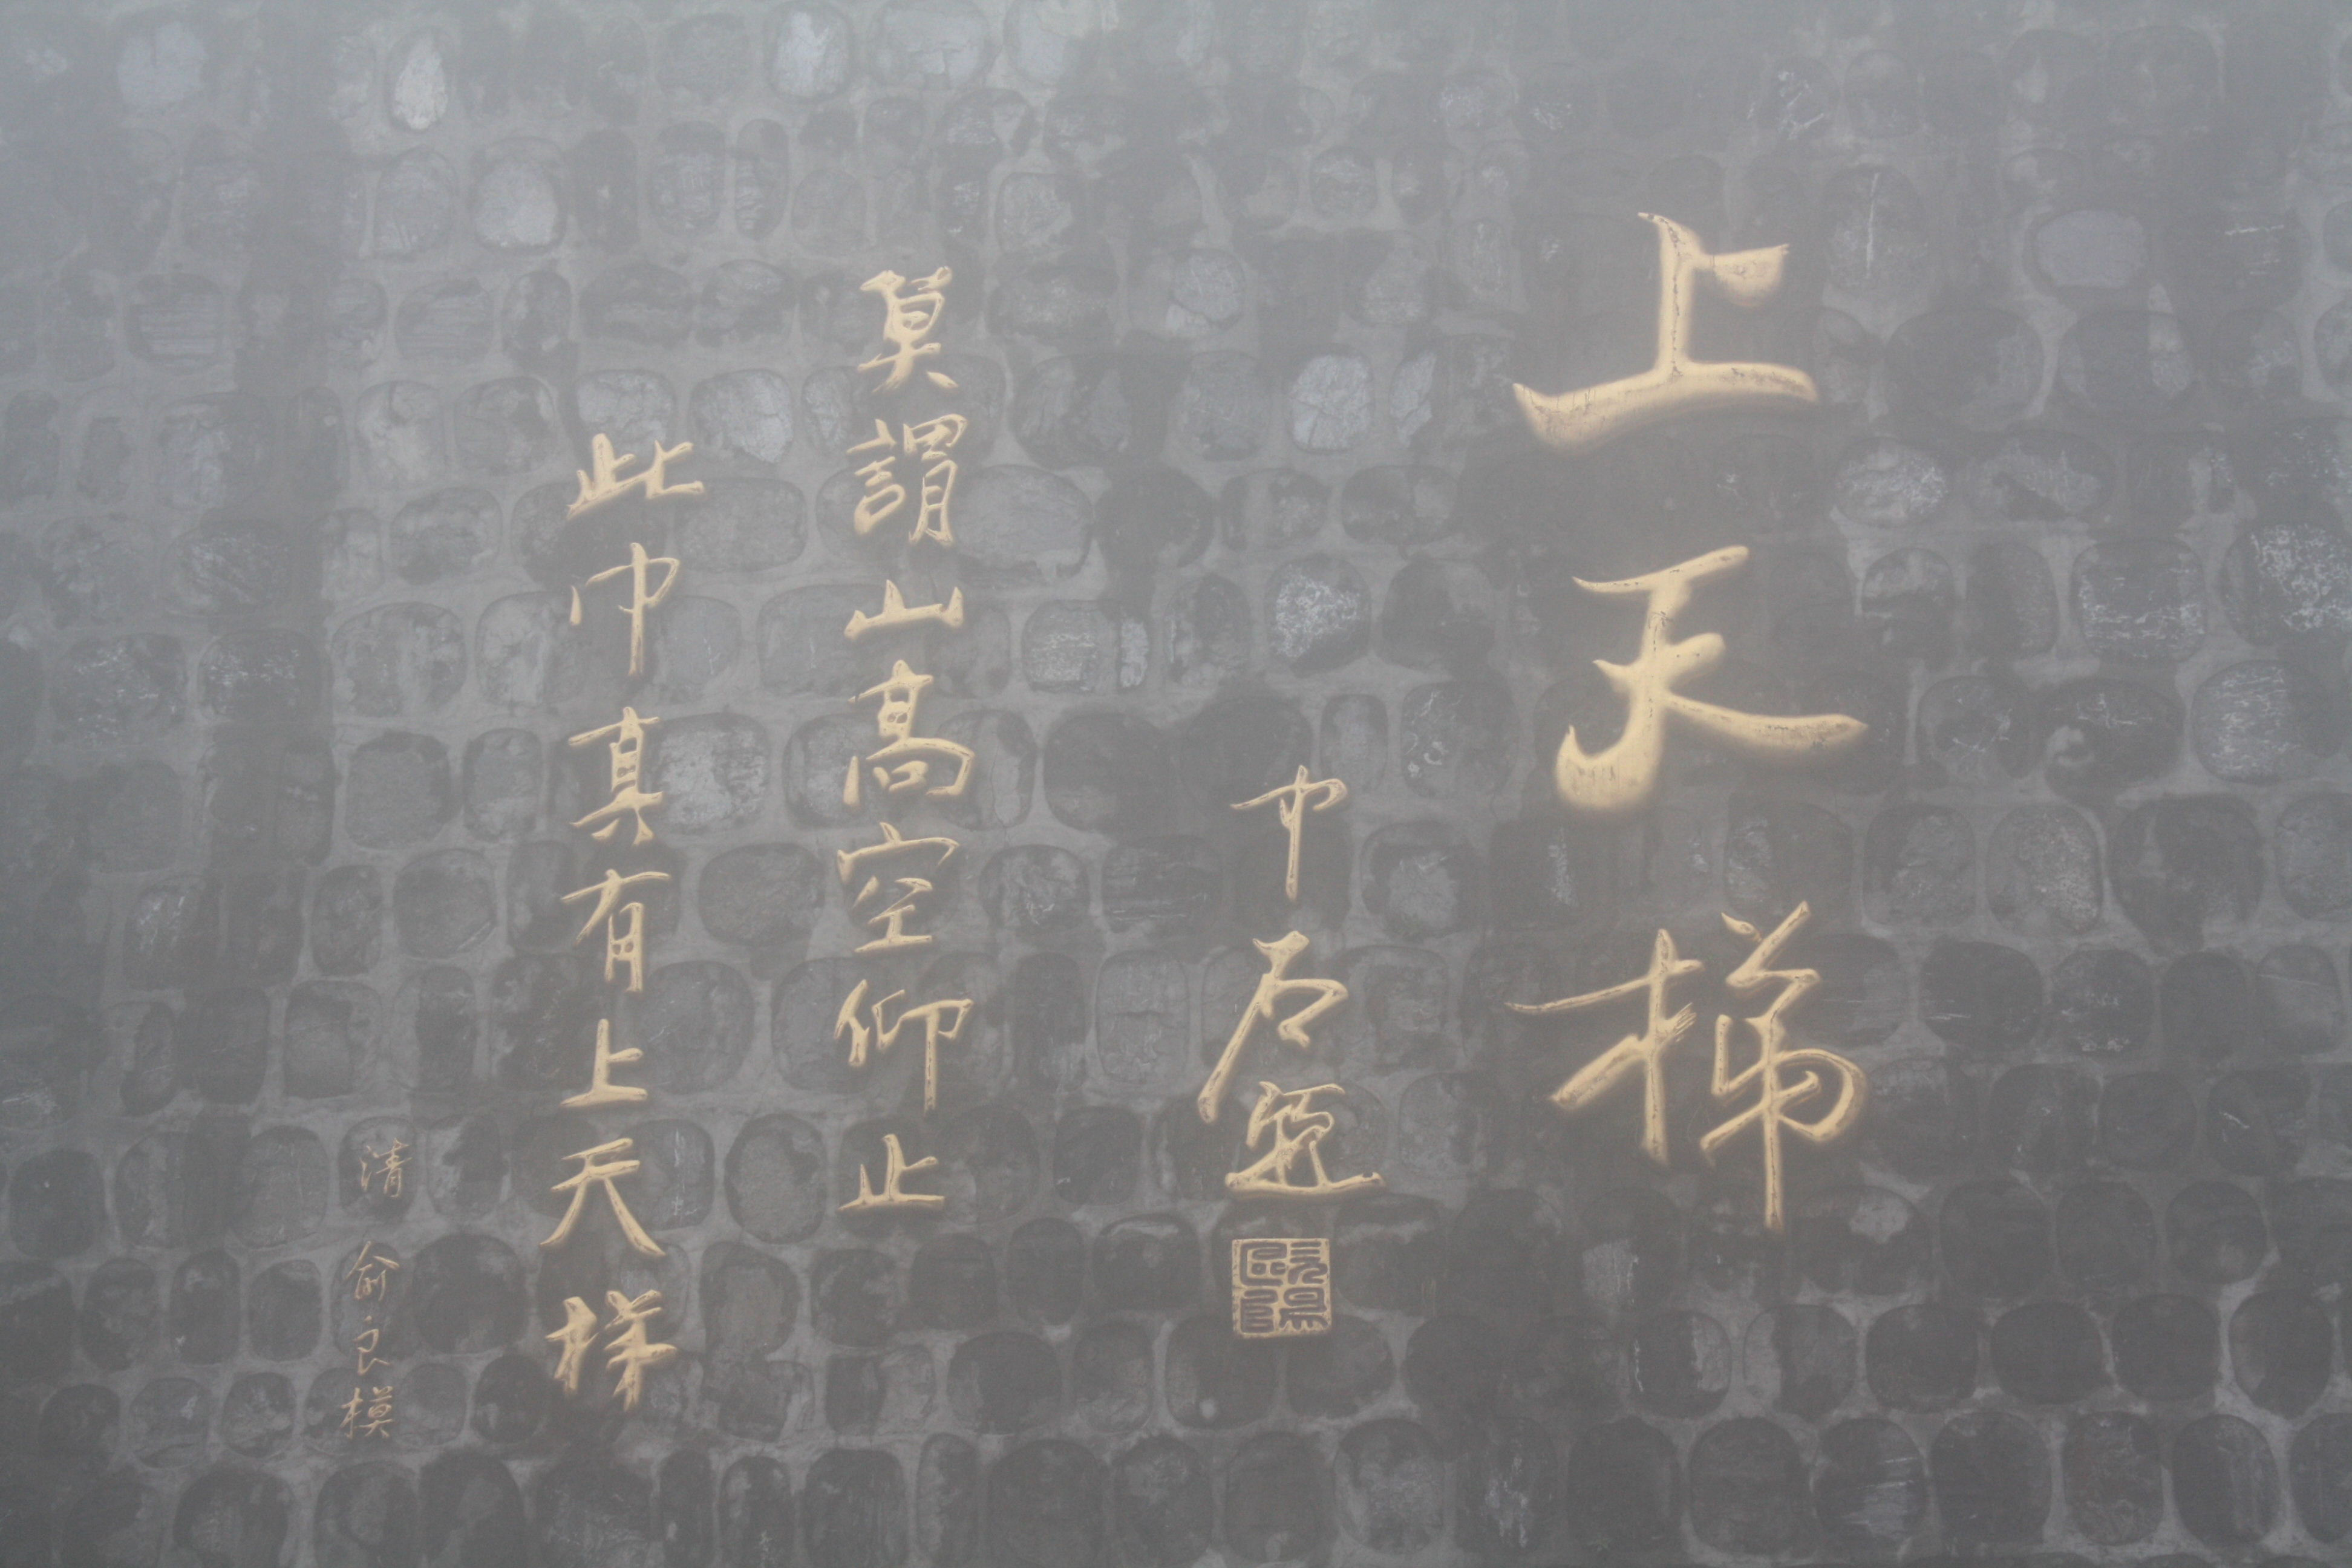 上天梯
中石題
莫謂山高空仰止
此中真有上天梯
清 俞良模